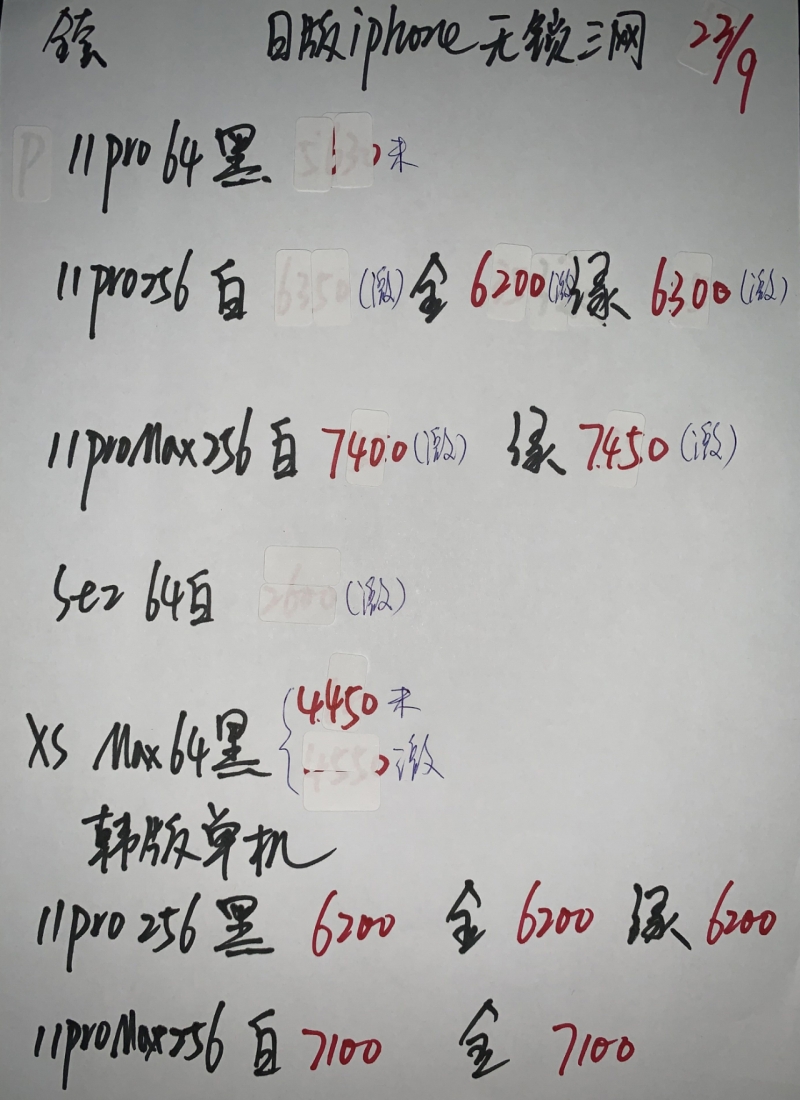 全套 日版iphone无锁三网 23/9
11pro 64黑 未
11pro256 白 (激) 金 6200(激) 绿 6300(激)
11proMax256白 7400(激) 绿 7450(激)
Se2 64白 (激)
XS Max64黑 4450未
激
韩版单机
11pro 256黑 6200 金 6200 绿 6200
11proMax256 白 7100 金 7100